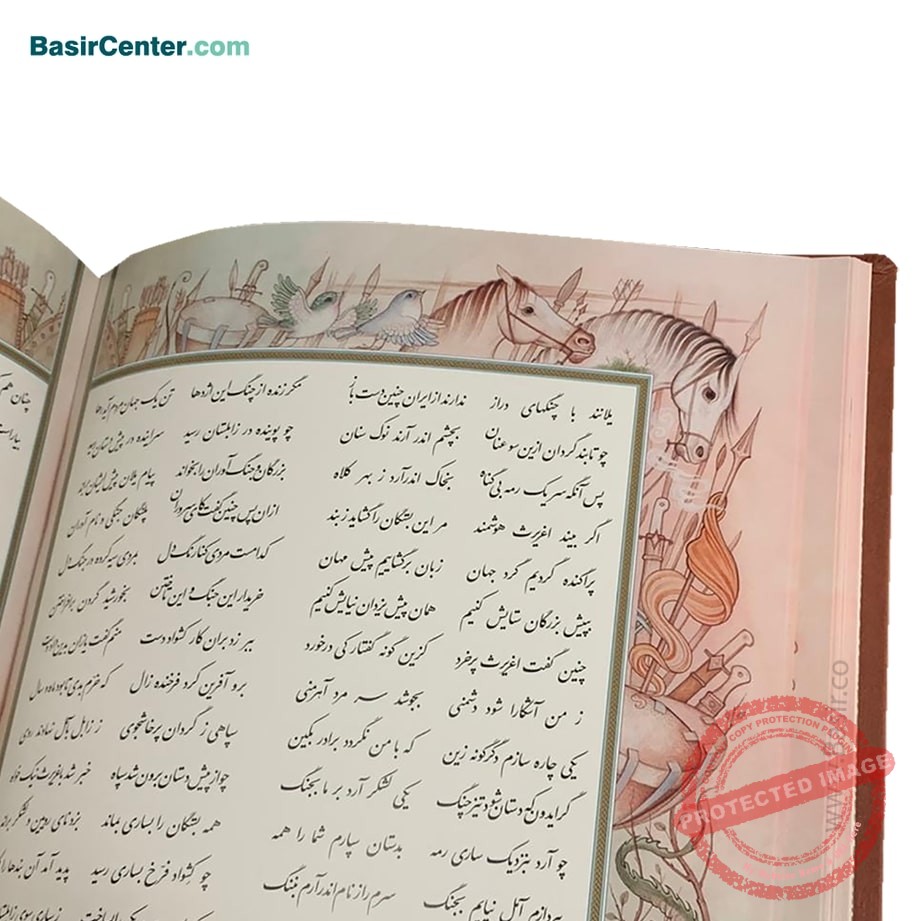 BasirCenter.com
چنان هم
یلانند با چنگهای دراز ندارند از ایران چنین دست باز مگر زنده از چنگ این اژدها تن یک جهان مردم آید رها
چو تابند گردان ازین سو عنان بچشم اندر آرند نوک سنان چو پوینده در زابلستان رسید سراینده در پیش دستان رسید
پس آنگه سر یک رمه بی گناه بخاک اندر آرد ز بهر کلاه بزرگان و جنگ آوران را بخواند پیام یلان پیش ایشان براند
اگر بیند اغریرث هوشمند مر این بستگان را گشاید ز بند ازان پس چنین گفت کای سروران پلنگان جنگی و نام آوران
پراگنده گردیم گرد جهان زبان برگشاییم پیش مهان کدامست مردی کنارنگ دل بمردی سیه کرده در جنگ دل
بپیش بزرگان ستایش کنیم همان پیش یزدان نیایش کنیم خریدار این جنگ و این تاختن بخورشید گردن برافراختن
چنین گفت اغریرث پرخرد کزین گونه گفتار کی درخورد ببر زد بران کار کشواد دست منم گفت یازان بدین داد دست
ز من آشکارا شود دشمنی بجوشد سر مرد آهرمنی برو آفرین کرد فرخنده زال که خرم بدی تا بود ماه و سال
یکی چاره سازم دگرگونه زین که با من نگردد برادر بکین سپاهی ز گردان پرخاشجوی ز زابل بآمل نهادند روی
گر ایدون که دستان شود تیز چنگ یکی لشکر آرد بر ما بجنگ چو از پیش دستان برون شد سپاه خبر شد باغریرث نیک خواه
چو آرد بنزدیک ساری رمه بدستان سپارم شما را همه همه بستگان را بساری بماند بزد نای رویین و لشکر براند
بپردازم آمل نیایم بجنگ سرم را ز نام اندر آرم بننگ چو گشواد فرّخ بساری رسید پدید آمد آن بندها را
COPY PROTECTION PLUGIN
PROTECTED IMAGE